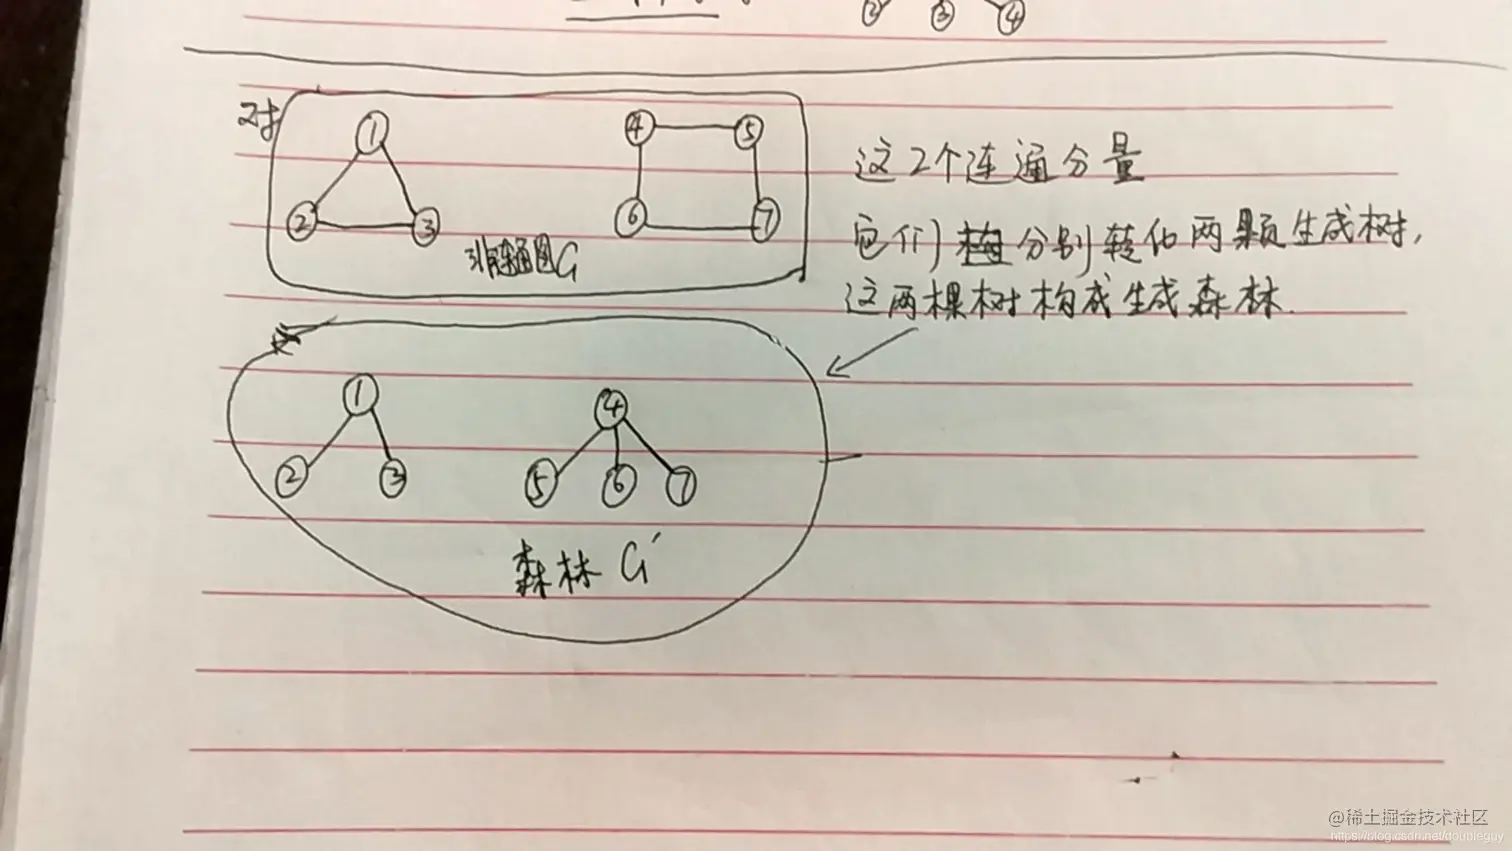 ② ③ ④
对
①
② ③
④ ⑤
⑥ ⑦
非连通图G
这2个连通分量
它们分别转化两颗生成树,
这两棵树构成生成森林.
①
② ③
④
⑤ ⑥ ⑦
森林 G′
@稀土掘金技术社区
https://blog.csdn.net/doubleguy